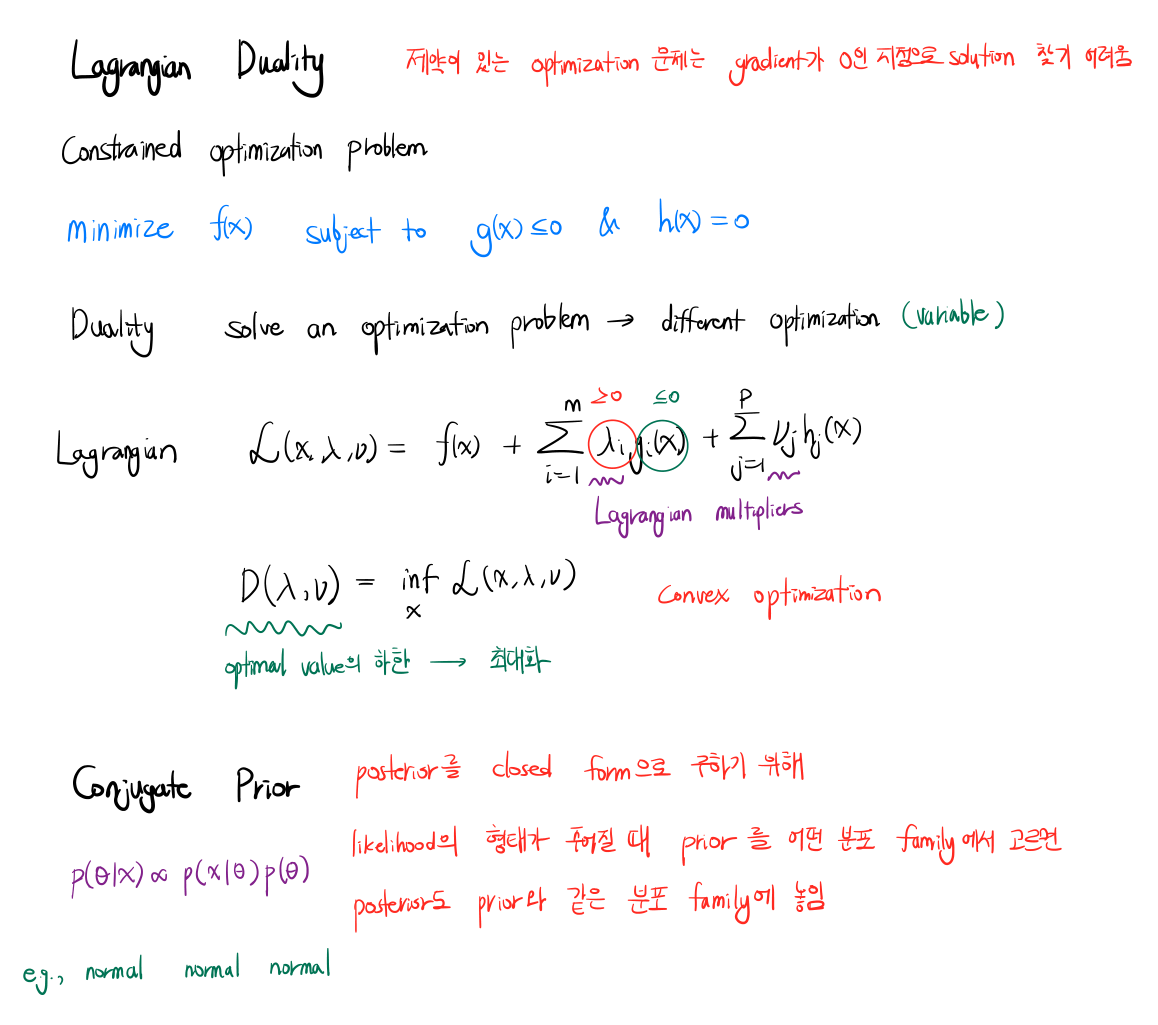 Lagrangian Duality 제약이 있는 optimization 문제는 gradient가 0인 지점으로 solution 찾기 어려움
Constrained optimization problem
minimize f(x) subject to g(x) ≤ 0 & h(x) = 0
Duality solve an optimization problem → different optimization (variable)
Lagrangian ℒ(x, λ, ν) = f(x) + ∑_{i=1}^{m} λᵢ gᵢ(x) + ∑_{j=1}^{p} νⱼ hⱼ(x)
≥0 ≤0
Lagrangian multipliers
D(λ, ν) = inf_x ℒ(x, λ, ν) Convex optimization
optimal value의 하한 → 최대화
Conjugate Prior posterior를 closed form으로 구하기 위해
likelihood의 형태가 주어질 때 prior를 어떤 분포 family에서 고르면
p(θ|x) ∝ p(x|θ)p(θ)
posterior도 prior와 같은 분포 family에 놓임
e.g., normal normal normal